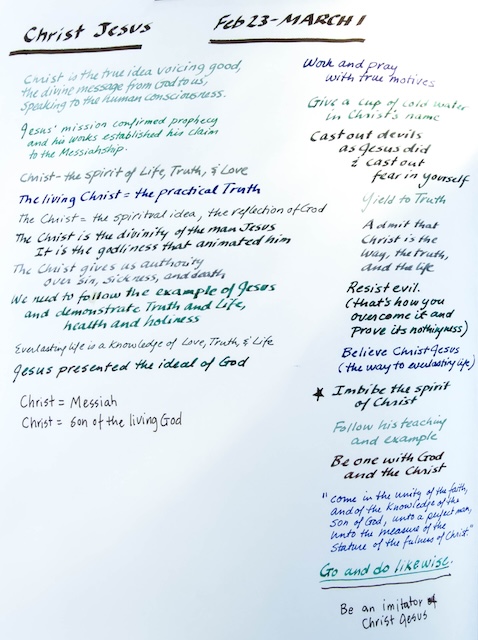 Christ Jesus
Feb 23-MARCH 1
Christ is the true idea voicing good,
the divine message from God to us,
speaking to the human consciousness.
Jesus' mission confirmed prophecy
and his works established his claim
to the Messiahship.
Christ - the spirit of Life, Truth, & Love
The living Christ = the practical Truth
The Christ = the spiritual idea, the reflection of God
The Christ is the divinity of the man Jesus
It is the godliness that animated him
The Christ gives us authority
over sin, sickness, and death
We need to follow the example of Jesus
and demonstrate Truth and Life,
health and holiness
Everlasting life is a knowledge of Love, Truth, & Life
Jesus presented the ideal of God
Christ = Messiah
Christ = son of the living God
Work and pray
with true motives
Give a cup of cold water
in Christ's name
Cast out devils
as Jesus did
& cast out
fear in yourself
Yield to Truth
Admit that
Christ is the
way, the truth,
and the life
Resist evil.
(that's how you
overcome it and
prove its nothingness)
Believe Christ Jesus
(the way to everlasting life)
★ Imbibe the spirit
of Christ
Follow his teaching
and example
Be one with God
and the Christ
"come in the unity of the faith,
and of the knowledge of the
son of God, unto a perfect man,
unto the measure of the
stature of the fulness of Christ."
Go and do likewise.
Be an imitator of
Christ Jesus